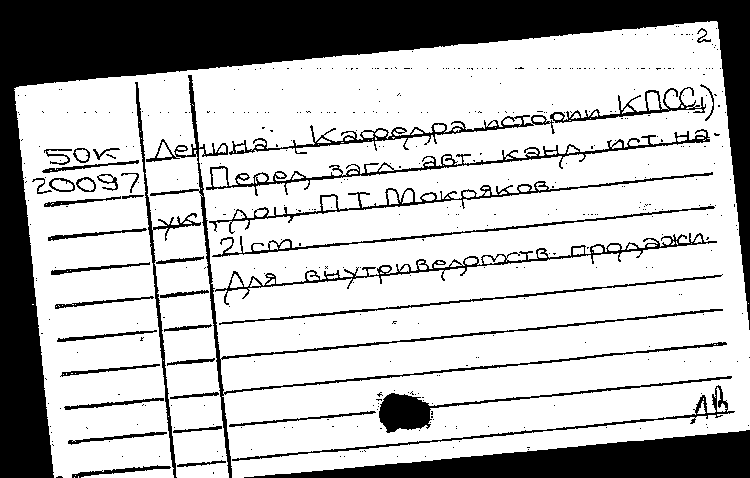 2
50к Ленина. (Кафедра истории КПСС)
20097 Перед загл. авт.: канд. ист. на-
ук, доц. П.Т. Мокряков.
21 cm.
Для внутриведомств. продажи.
ЛВ